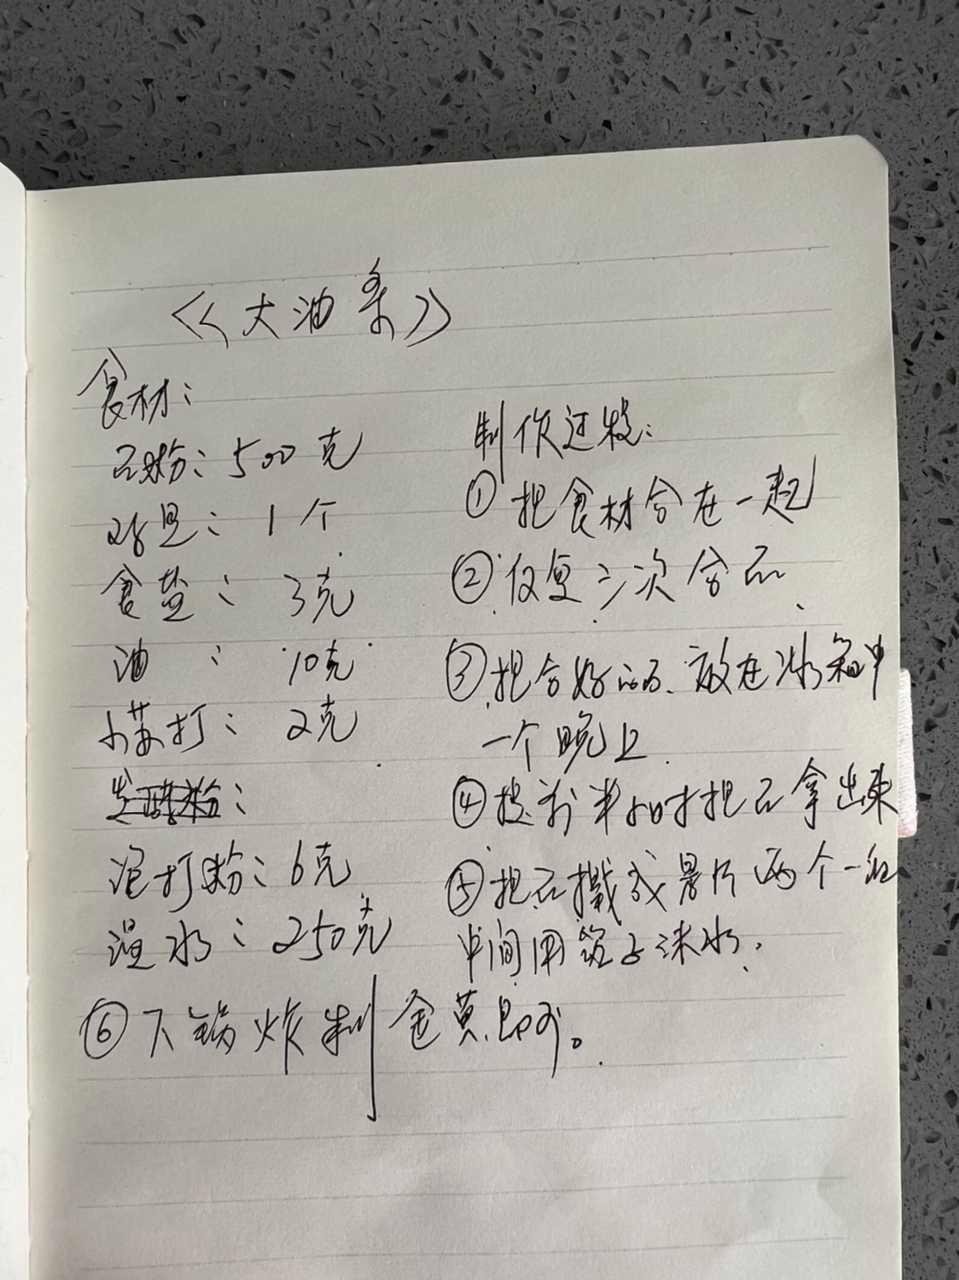 《大油条》
食材：
面粉：500克
鸡旦：1个
食盐：3克
油：10克
小苏打：2克
泡打粉：6克
温水：250克
制作过程：
①把食材合在一起
②反复三次合面
③把合好的面放在冰箱中
一个晚上
④提前半小时把面拿出来
⑤把面擀成署片两个一组
中间用筷子沫水.
⑥下锅炸制金黄即可。